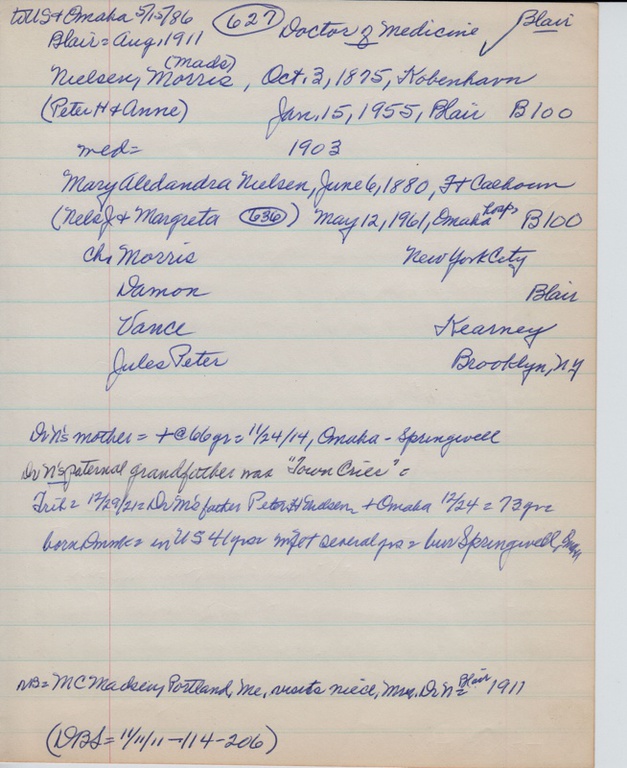 to US & Omaha 5/15/86 627 Doctor of Medicine ✓ Blair
Blair = Aug, 1911
(Mads)
Nielsen, Morris, Oct. 3, 1875, Kobenhavn
(Peter H & Anne) Jan. 15, 1955, Blair B100
med= 1903
Mary Aledandra Nielsen, June 6, 1880, Ft Calhoun
(Nels J & Margreta 636) May 12, 1961, Omaha hosp B100
Ch, Morris New York City
Damon Blair
Vance Kearney
Jules Peter Brooklyn, NY
Dr N's mother = + @ 66 yrs = 11/24/14, Omaha - Springwell
Dr N's paternal grandfather was "Town Crier" =
Trib = 12/29/21 = Dr N's father Peter H + Omaha 12/24 = 73 yrs =
born Dnmk = in US 41 yrs = several yrs = bur Springwell,
NB = MC Madsen, Portland, Me, visits niece, Mrs, Dr N = Blair 1911
(DBS = 11/11/11 - 114-206)